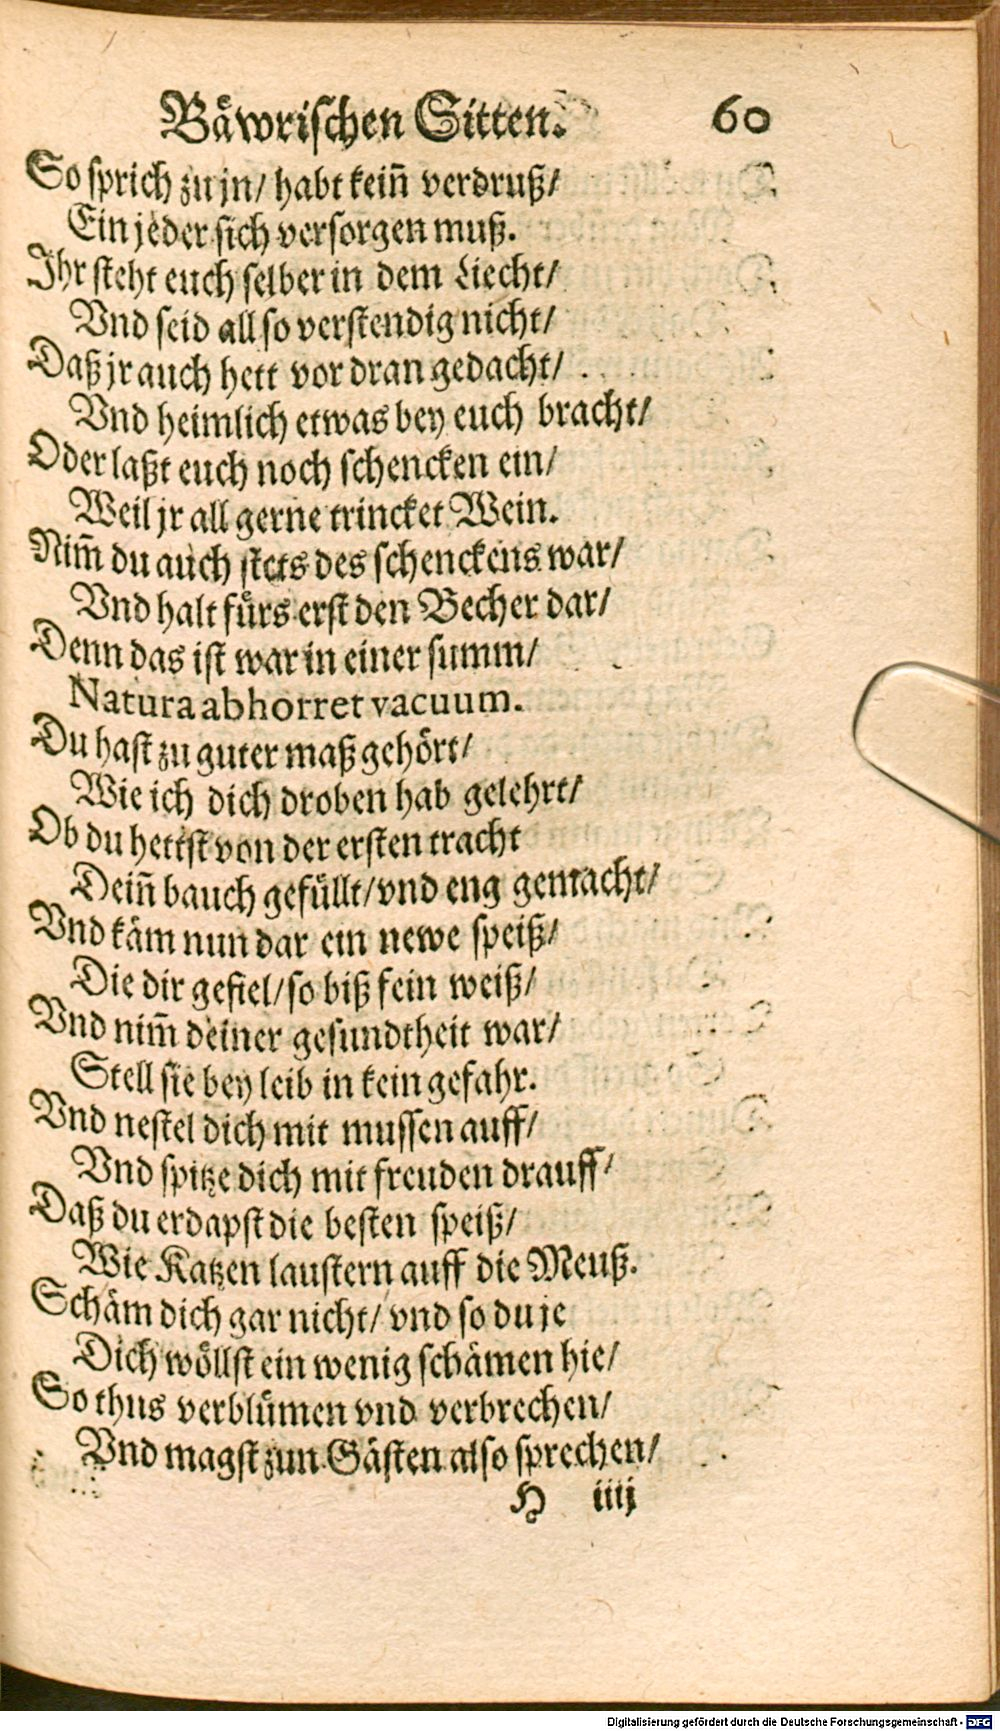 Bäwrischen Sitten. 60
So sprich zu jn/ habt kein̄ verdruß/
Ein jeder sich versorgen muß.
Ihr steht euch selber in dem Liecht/
Vnd seid all so verstendig nicht/
Daß jr auch hett vor dran gedacht/
Vnd heimlich etwas bey euch bracht/
Oder laßt euch noch schencken ein/
Weil jr all gerne trincket Wein.
Nim̄ du auch stets des schenckens war/
Vnd halt fürs erst den Becher dar/
Denn das ist war in einer summ/
Natura abhorret vacuum.
Du hast zu guter maß gehört/
Wie ich dich droben hab gelehrt/
Ob du hettst von der ersten tracht
Dein̄ bauch gefüllt/ vnd eng gemacht/
Vnd käm nun dar ein newe speiß/
Die dir gefiel/ so biß fein weiß/
Vnd nim̄ deiner gesundtheit war/
Stell sie bey leib in kein gefahr.
Vnd nestel dich mit mussen auff/
Vnd spitze dich mit freuden drauff/
Daß du erdapst die besten speiß/
Wie Katzen laustern auff die Meuß.
Schäm dich gar nicht/ vnd so du je
Dich wöllst ein wenig schämen hie/
So thus verblümen vnd verbrechen/
Vnd magst zun Gästen also sprechen/
H iiij
Digitalisierung gefördert durch die Deutsche Forschungsgemeinschaft - DFG